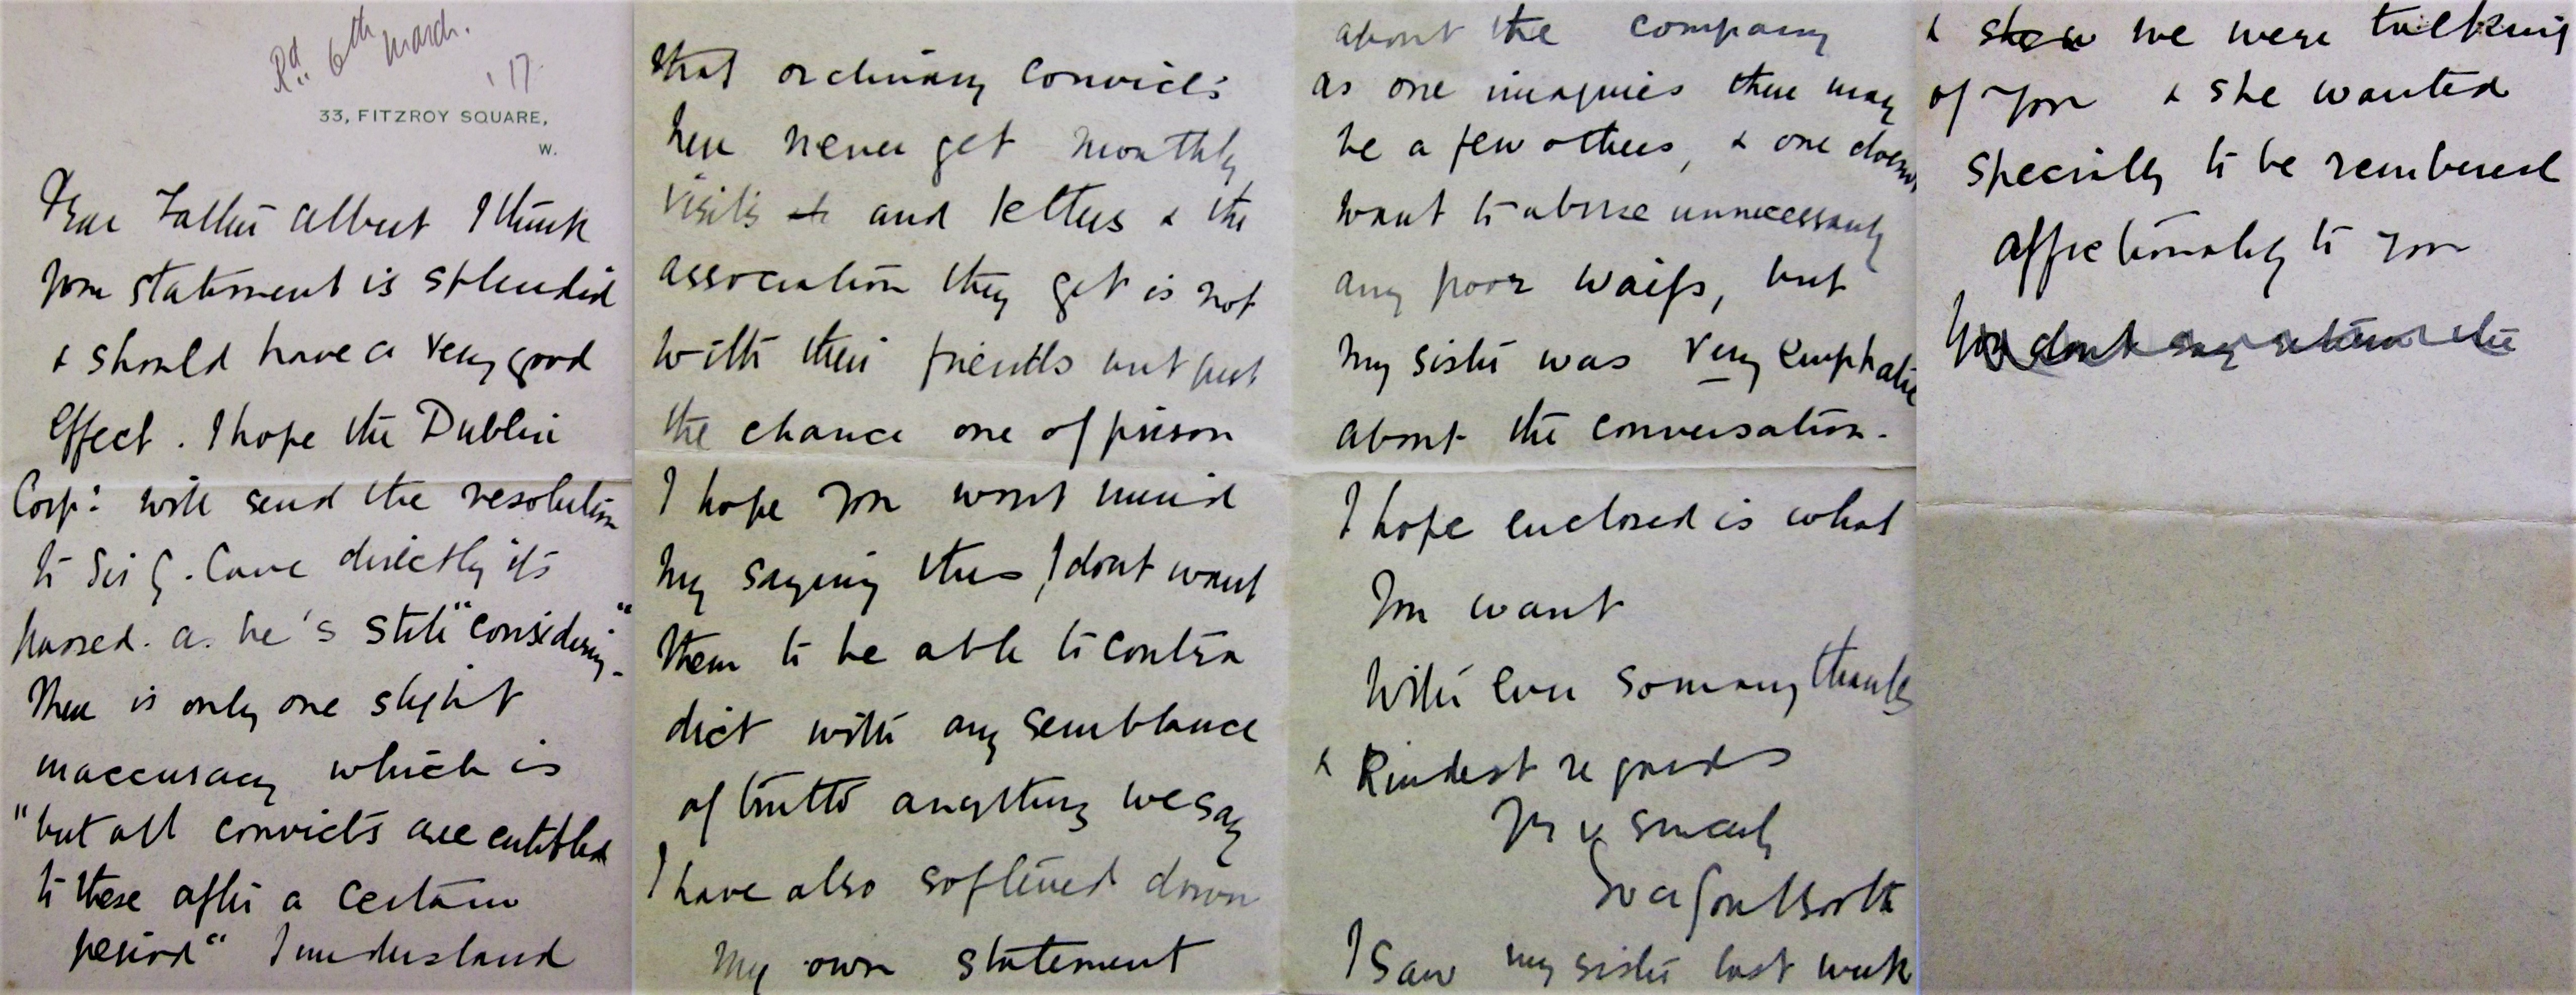 Rd. 6th March. '17
33, FITZROY SQUARE,
W.
Dear Father Albert I think
your statement is splendid
& should have a very good
effect. I hope the Dublin
Corp: will send the resolution
to Sir G. Cave directly its
passed. as he's still "considering".
There is only one slight
inaccuracy which is
"but all convicts are entitled
to these after a certain
period" I understand
that ordinary convicts
here never get monthly
visits and letters & the
association they get is not
with their friends but just
the chance one of prison
I hope you wont mind
my saying this, I dont want
them to be able to contra
dict with any semblance
of truth anything we say
I have also softened down
my own statement
about the company
as one imagines there may
be a few others, & one doesnt
want to abuse unnecessarily
any poor waifs, but
my sister was very emphatic
about the conversation.
I hope enclosed is what
you want
With ever so many thanks
& kindest regards
Yrs v sincerely
Eva Gore Booth
I saw my sister last week
& we were talking
of you & she wanted
specially to be remembered
affectionately to you
You dont say